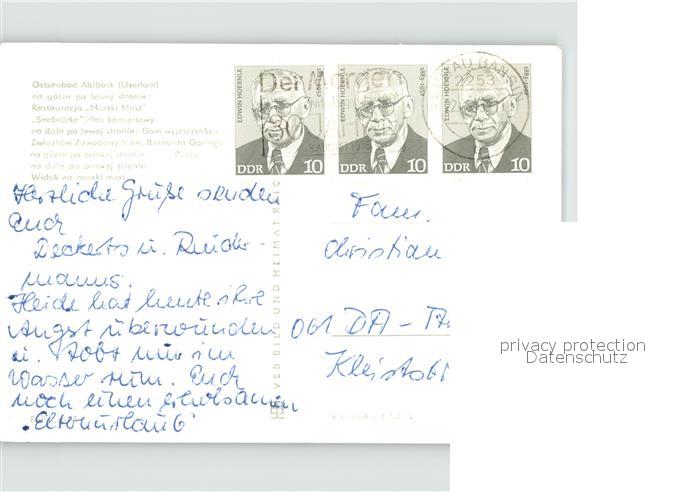 Ostseebad Ahlbeck (Usedom)
na górze po lewej stronie:
Restauracja „Morski Most"
„Seebrücke"; Plac koncertowy
na dole po lewej stronie: Dom wypoczynkowy
Związków Zawodowych im. Bernarda Göringa
na górze po prawej stronie: Plaża
na dole po prawej stronie:
Widok na morski most
EDWIN HOERNLE 1883-1952
DDR 10
EDWIN HOERNLE 1883-1952
DDR 10
EDWIN HOERNLE 1883-1952
DDR 10
Der Morgen
2253
Herzliche Grüße senden
Euch
Deckerts u.
Heide hat heute ihre
Angst überwunden
u. tobt nur im
Wasser rum. Euch
noch einen erholsamen
"Elternurlaub"
VEB BILD UND HEIMAT
Fam.
Christian
061 DA -
privacy protection
Datenschutz